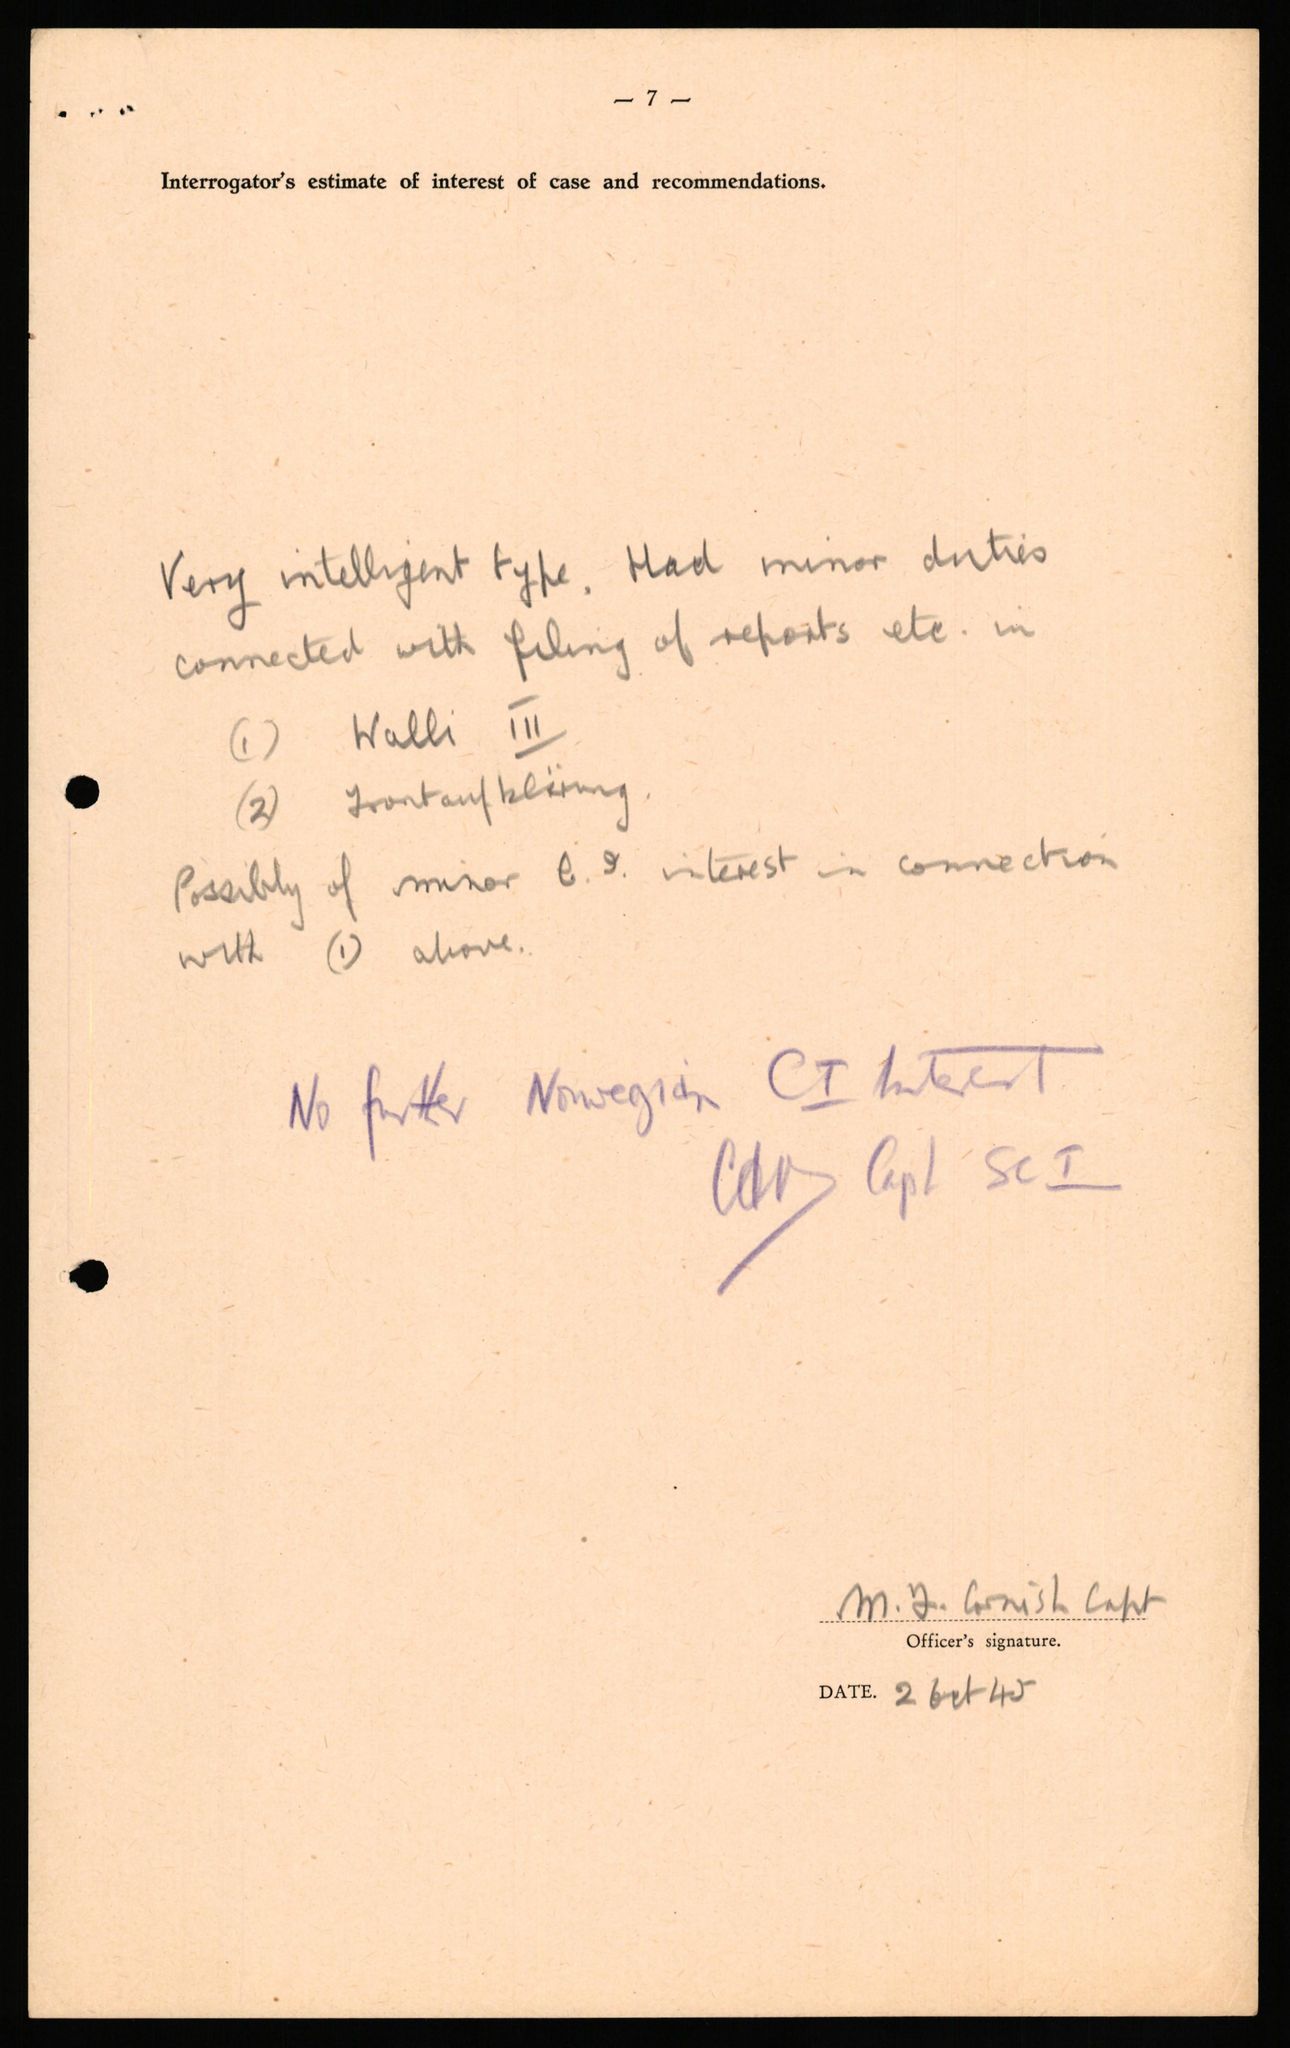 — 7 —
Interrogator's estimate of interest of case and recommendations.
Very intelligent type. Had minor duties
connected with filing of reports etc. in
(1) Walli III
(2) Frontaufklärung.
Possibly of minor C.I. interest in connection
with (1) above.
No further Norwegian CI Interest
Capt SCI
M. F. Cornish Capt
Officer's signature.
DATE. 2 Oct 45